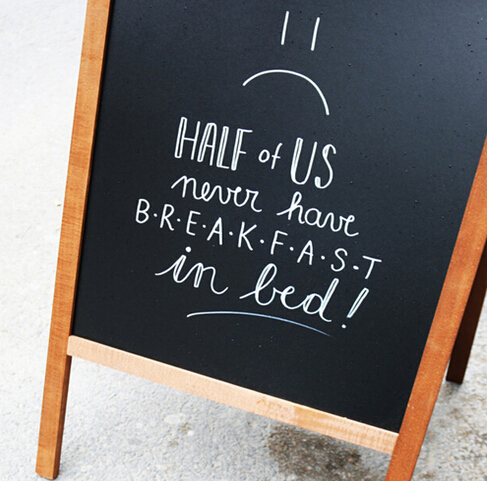 HALF of US
never have
B·R·E·A·K·F·A·S·T
in bed!